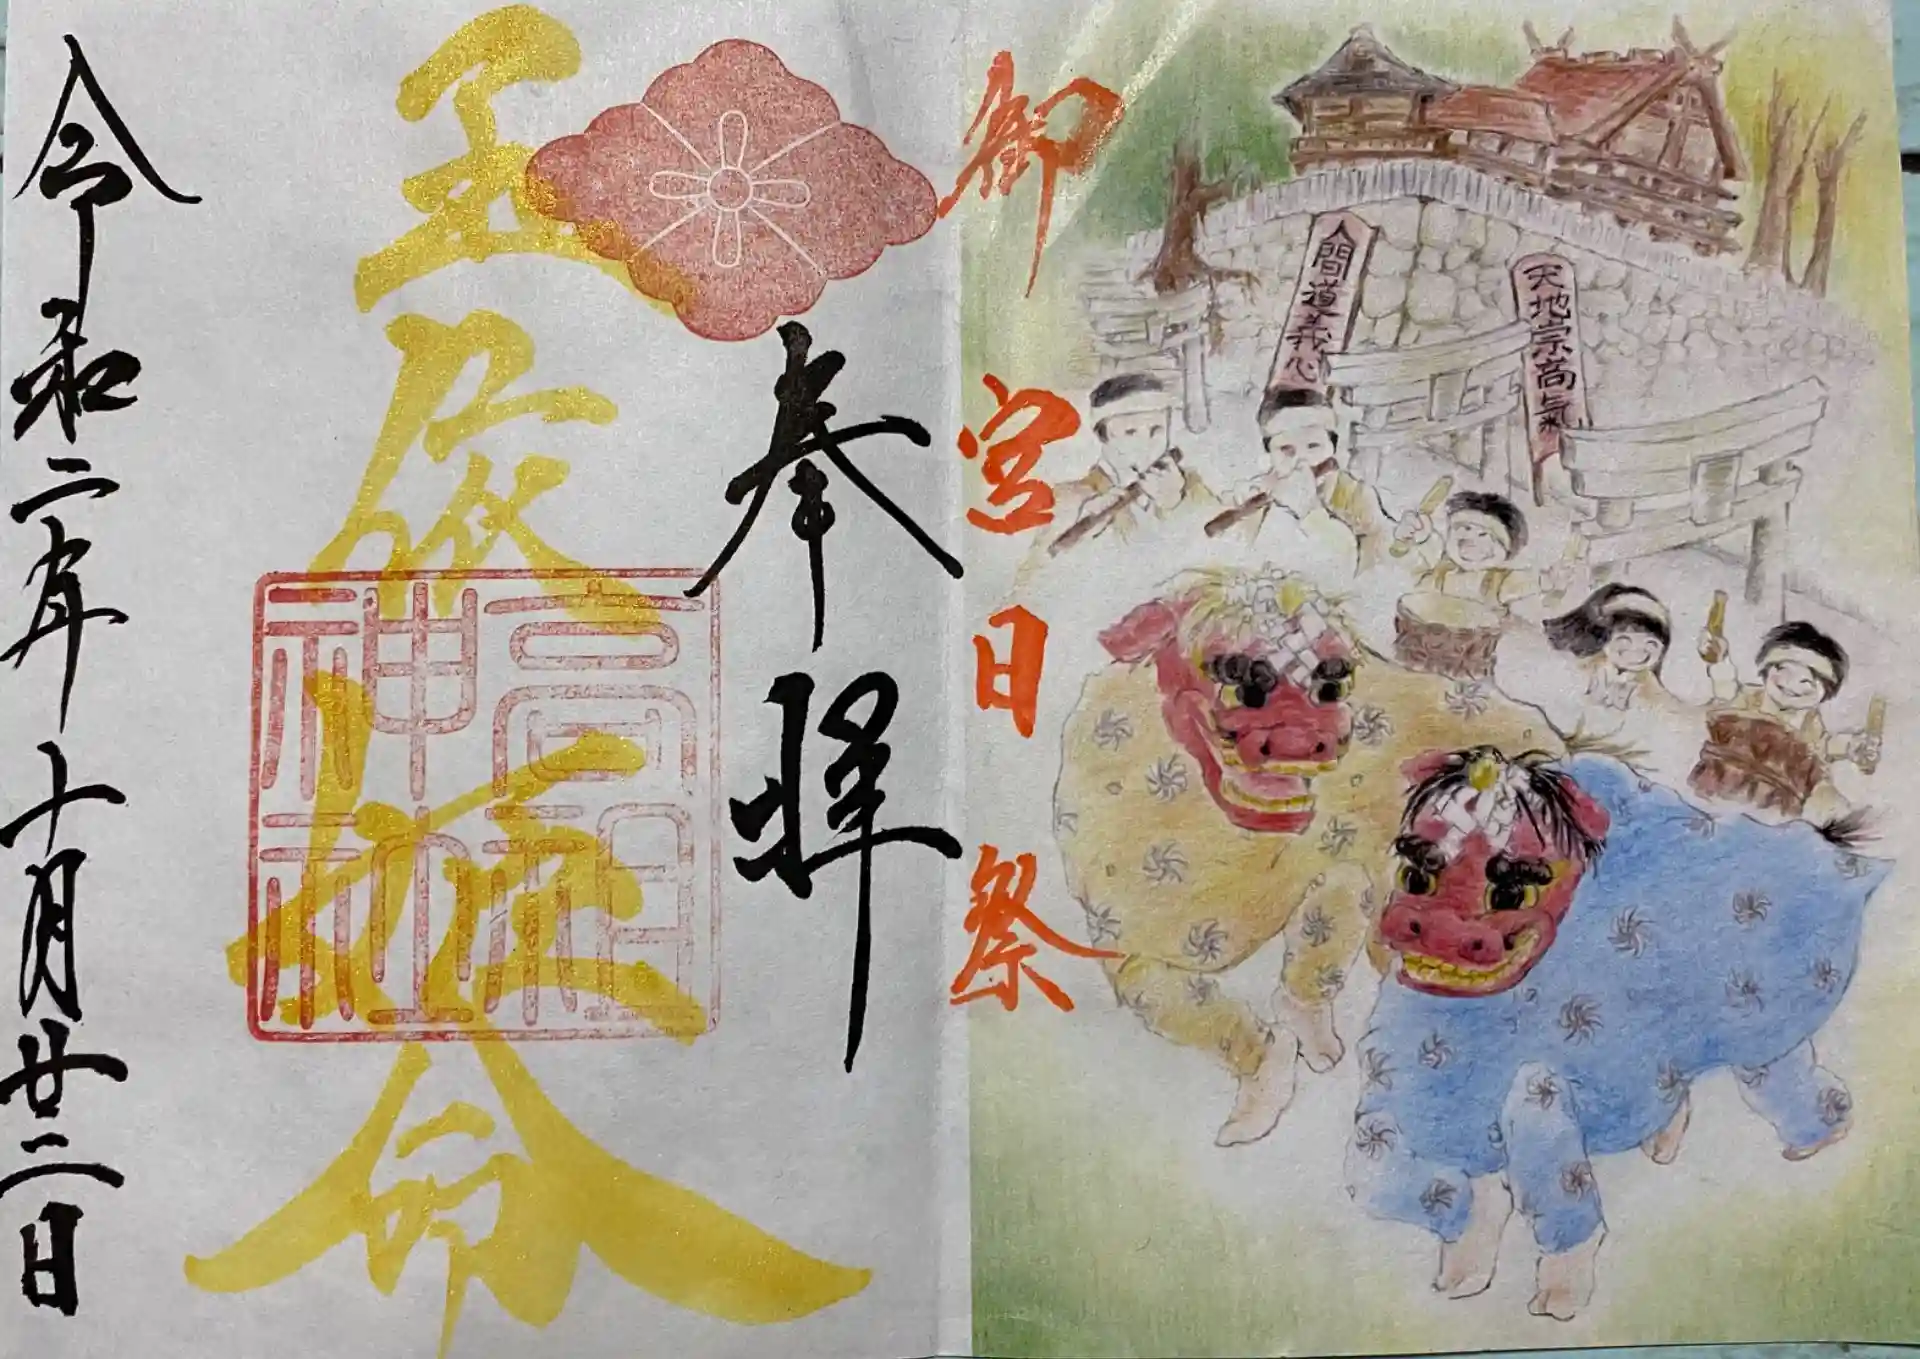 御宮日祭
天地宗高氣
人間道義心
奉拝
玉依姫命
高祖神社
令和二年十月廿二日